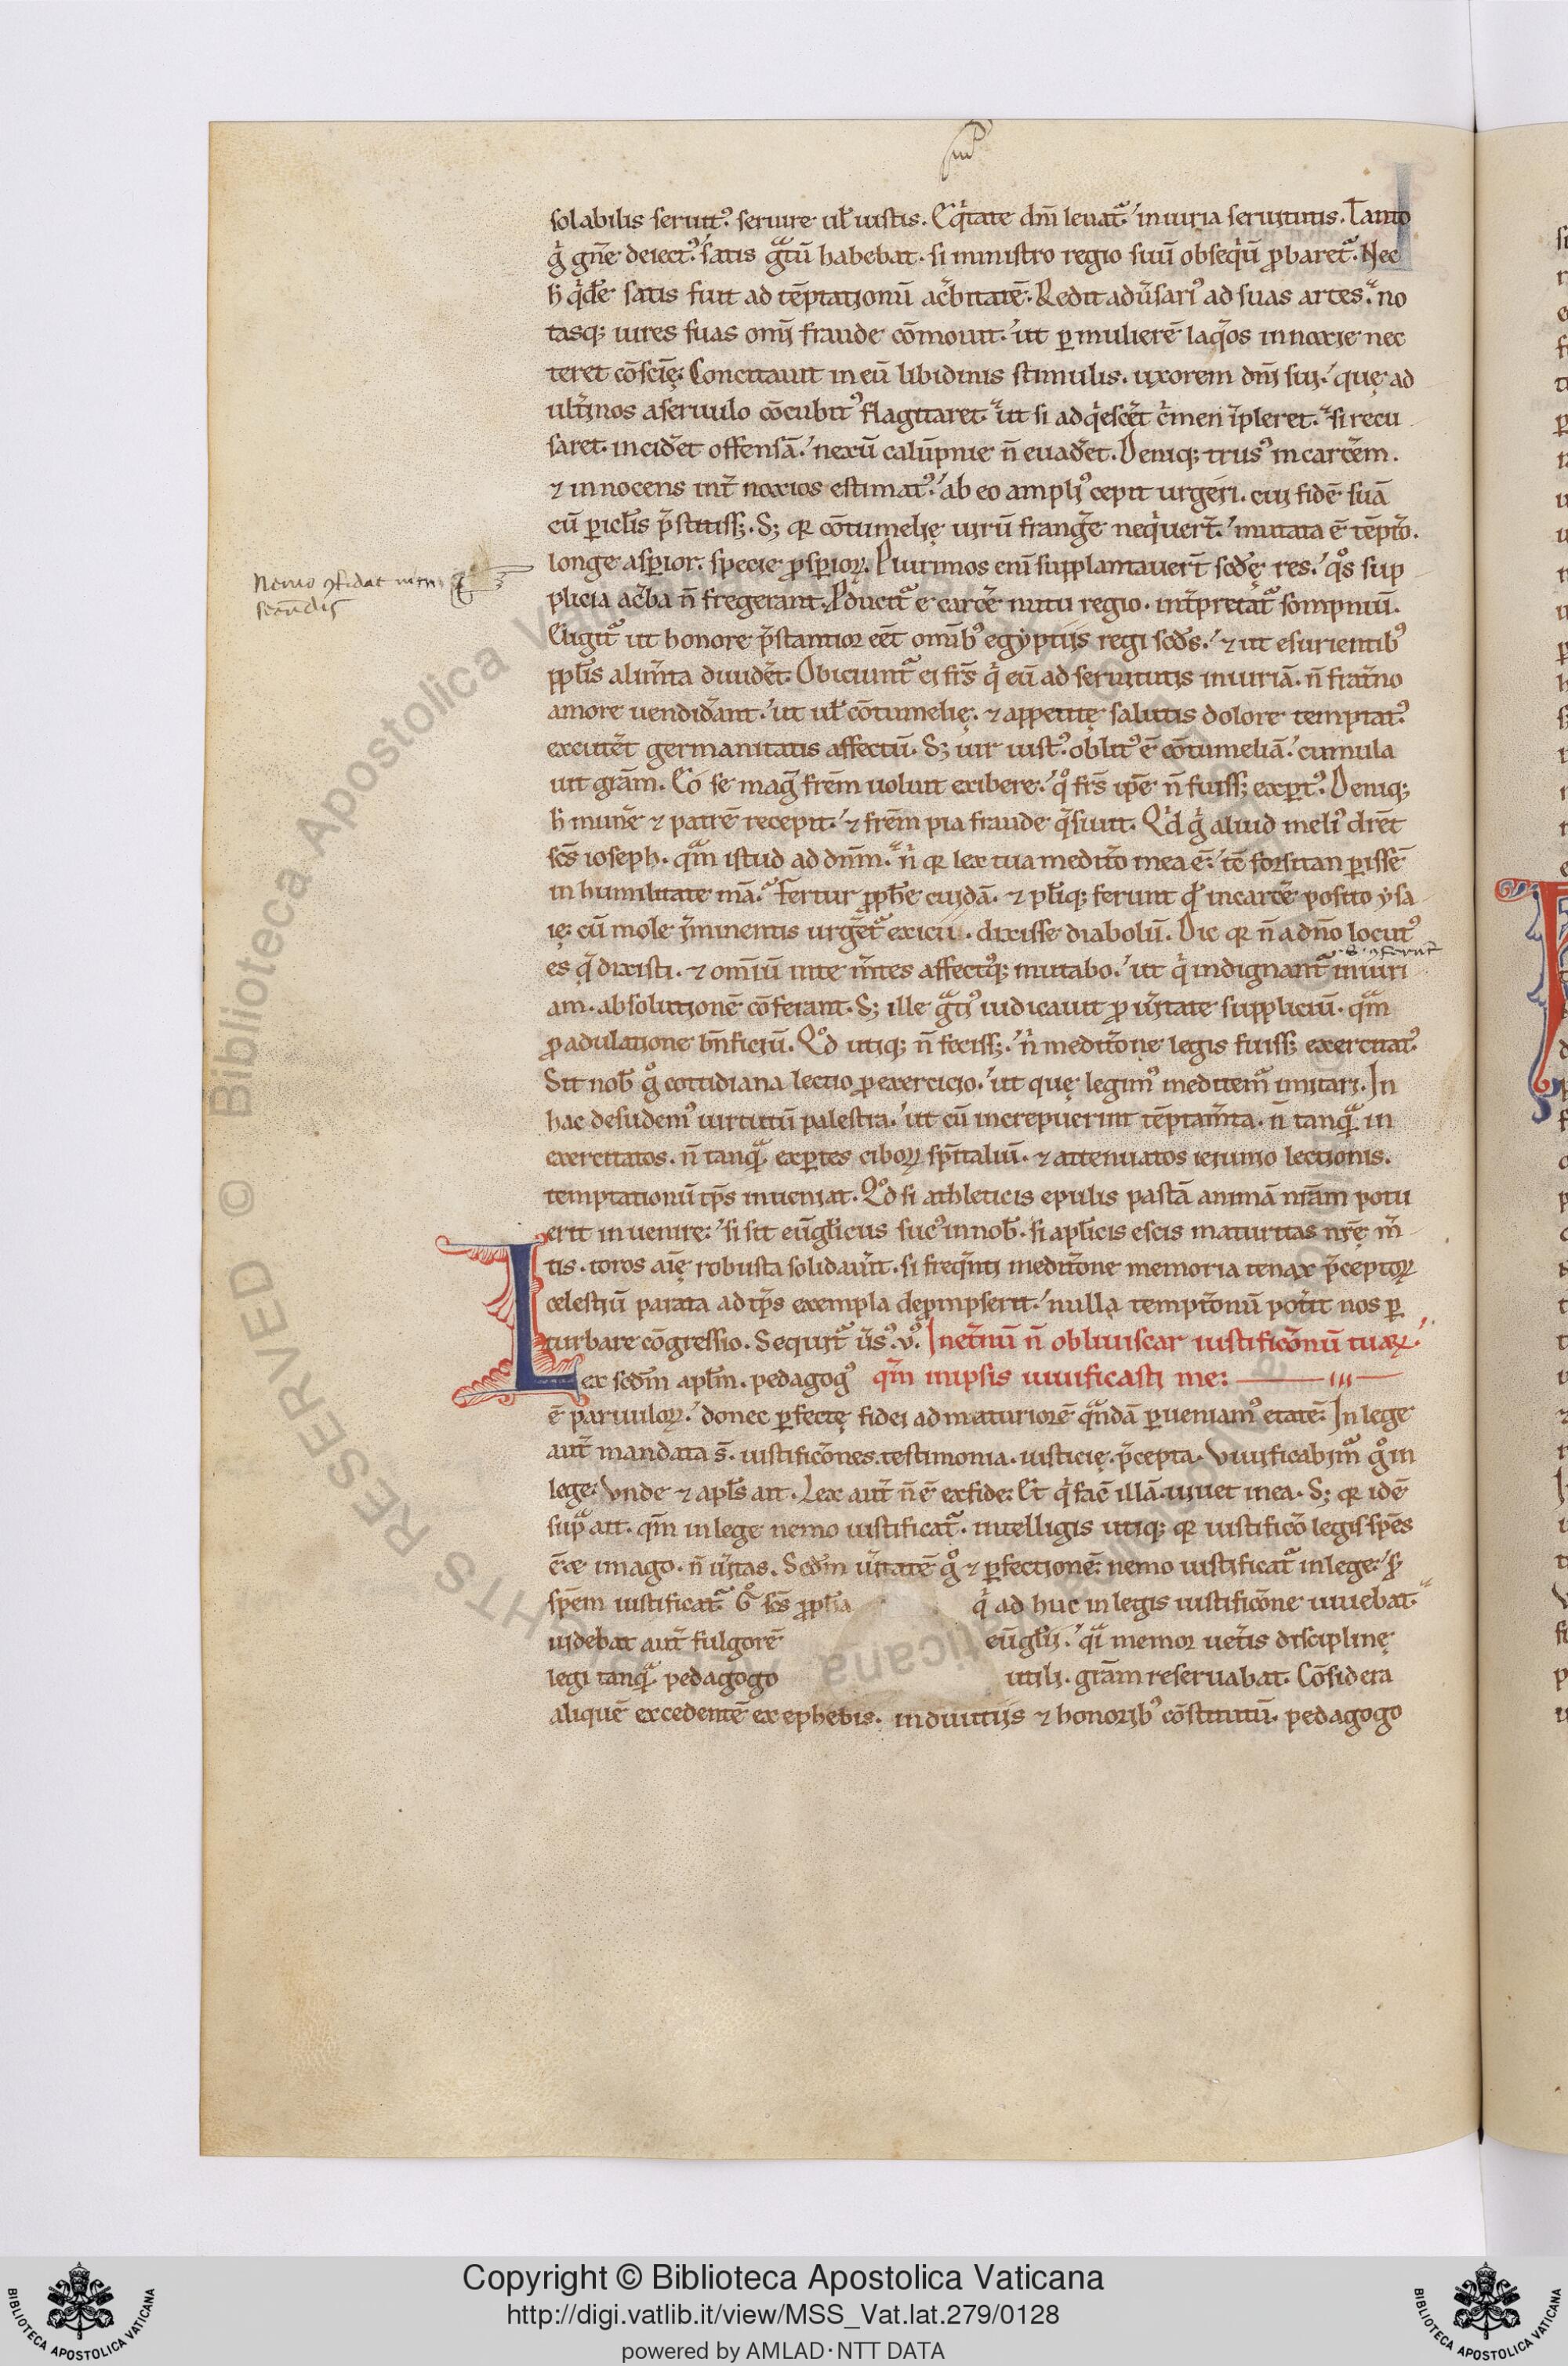 solabilis seruit᷒. seruire ul̄ iustis. Eqͥtate dn̄i leuat᷑ iniuria seruitutis. Tanto
gͥ gn̄e deiect᷒. satis gᷓtū habebat. si ministro regio suū obseqͥū ꝓbaret᷑. Nec
h̄ qͥdē satis fuit ad tēptationū ac̄bitatē. Redit adu̅sari᷒ ad suas artes. no
tasq; uires suas omī fraude cōmouit. ut ꝑ mulierē laqͦos innoxie nec
teret cōsciē. Concitauit in eū libidinis stimulis. uxorem dn̄i sui. que ad
ult̄mos a seruulo cōcubit᷒ flagitaret. ut si adqͥescēt cͥmen īpleret. si recu
saret. incidēt offensā. nexū calūpnie n̄ euadēt. Deniq; trus᷒ in carcēm.
⁊ innocens int̄ noxios estimat᷒. ab eo ampli᷒ cepit urgeri. cui fidē suā
cū pericl̄is p̄stitiss;. S; qꝛ cōtumelię uirū frangē neqͥuer̄t. mutata ē tēptō.
longe asꝑior. specie ꝓsꝑior. Plurimos enī supplantauer̄t scd̄ę res. qͦs sup
plicia ac̄ba n̄ fregerant. Ꝓducit᷑ e carcē nutu regio. int̄pretat᷑ sompniū.
Eligit᷑ ut honore p̄stantior eēt omīb᷒ egyptiis regi scd̄s. ⁊ ut esurientib᷒
ppl̄is alim̄ta diuidēt. Obiciunt᷑ ei fr̄s qͥ eū ad seruitutis iniuriā. n̄ frat̄no
amore uendidānt. ut ul̄ cōtumelię. ⁊ appetitę salutis dolore temptat᷒
excutēt germanitatis affectū. S; uir iust᷒. oblit᷒ ē cōtumeliā. cumula
uit grām. Eo se maḡ frēm uoluit exibere. qͦ fr̄s ip̄e n̄ fuiss; exꝑt᷒. Deniq;
h̄ munē ⁊ patrē recepit. ⁊ frēm pia fraude q̄siuit. Qͥd gͥ aliud meli᷒ dr̄et
scs̄ ioseph. qᷓm istud ad dn̄m. nͥ qꝛ lex tua meditō mea ē. tc̄ forsitan ꝑissē
in humilitate mā. Fertur ꝓph̄e cuidā. ⁊ pl̄iq; ferunt qd̄ in carcē posito ysa
ię. cū mole īminentis urgēt᷑ exicii. dixisse diabolū. Dic qꝛ n̄ a dn̄o locut᷒
es q̄ dixisti. ⁊ omīū in te m̄tes affectūq; mutabo. ut qͥ indignant᷑ iniuri
am. absolutionē cōferant. S; ille gᷓti᷒ iudicauit ꝓ ūitate suppliciū. qᷓm
ꝓ adulatione bn̄ficiū. Qͦd utiq; n̄ feciss;. nͥ meditōne legis fuiss; exercitat᷒.
Sit nob̄ gͦ cottidiana lectio ꝓ exercicio. ut quę legim᷒ meditem᷑ imitari. In
hac desudem᷒ uirtutū palestra. ut cū increpuerint tēptam̄ta. n̄ tanqᷓ in
exercitatos. n̄ tanqᷓ exꝑtes ciboꝝ sp̄italiū. ⁊ attenuatos ieiunio lectionis.
temptationū tp̄s inueniat. Qͦd si athleticis epulis pastā animā nr̄am potu
erit inuenire. si sit eūgl̄icus suc᷒ in nob̄. si apl̄icis escis maturitas nr̄ę m̄
tis. toros aīę robusta solidauīt. si freq̄nti meditōne memoria tenax p̄ceptoꝝ
celestiū parata ad tp̄s exempla deprompserit. nulla temptōnū pot̄it nos ꝑ
turbare cōgressio. Sequit᷑ u̅s᷒ .v᷒. In et̄nū n̄ obliuiscar iustificōnū tuaꝝ.
Lex scd̄m apl̄m. pedagog᷒ qm̄ in ipsis uiuificasti me:
ē paruuloꝝ. donec ꝑfectę fidei ad maturiorē qᷓndā ꝑueniam᷒ etatē. In lege
aut̄ mandata s̄. iustificōnes. testimonia. iusticię. p̄cepta. Viuificabim᷑ gͦ in
lege. Vnde ⁊ apl̄s ait. Lex aut̄ n̄ ē ex fide. Et qͥ facͥ illā. uiuet in ea. S; qꝛ idē
supᷓ ait. qm̄ in lege nemo iustificat᷑. intelligis utiq; qꝛ iustificō legis spēs
ē. ⁊ imago. n̄ ūitas. Scd̄m ūitatē gͦ ⁊ ꝑfectionē. nemo iustificat᷑ in lege.
spēm iustificat᷑. Gͦ scs̄ ꝓph̄a qͥ ad huc in legis iustificōne uiuebat.
uidebat aut̄ fulgorē eūgl̄ii. qͣi memor uet̄is disciplinę
legi tanqᷓ pedagogo utili. grām reseruabat. Cōsidera
aliquē excedentē ex ephebis. in diuitiis ⁊ honorib᷒ cōstitutū. pedagogo
Nemo ꝯfidat
secundis
Copyright © Biblioteca Apostolica Vaticana
http://digi.vatlib.it/view/MSS_Vat.lat.279/0128
powered by AMLAD·NTT DATA
BIBLIOTECA APOSTOLICA VATICANA
BIBLIOTECA APOSTOLICA VATICANA